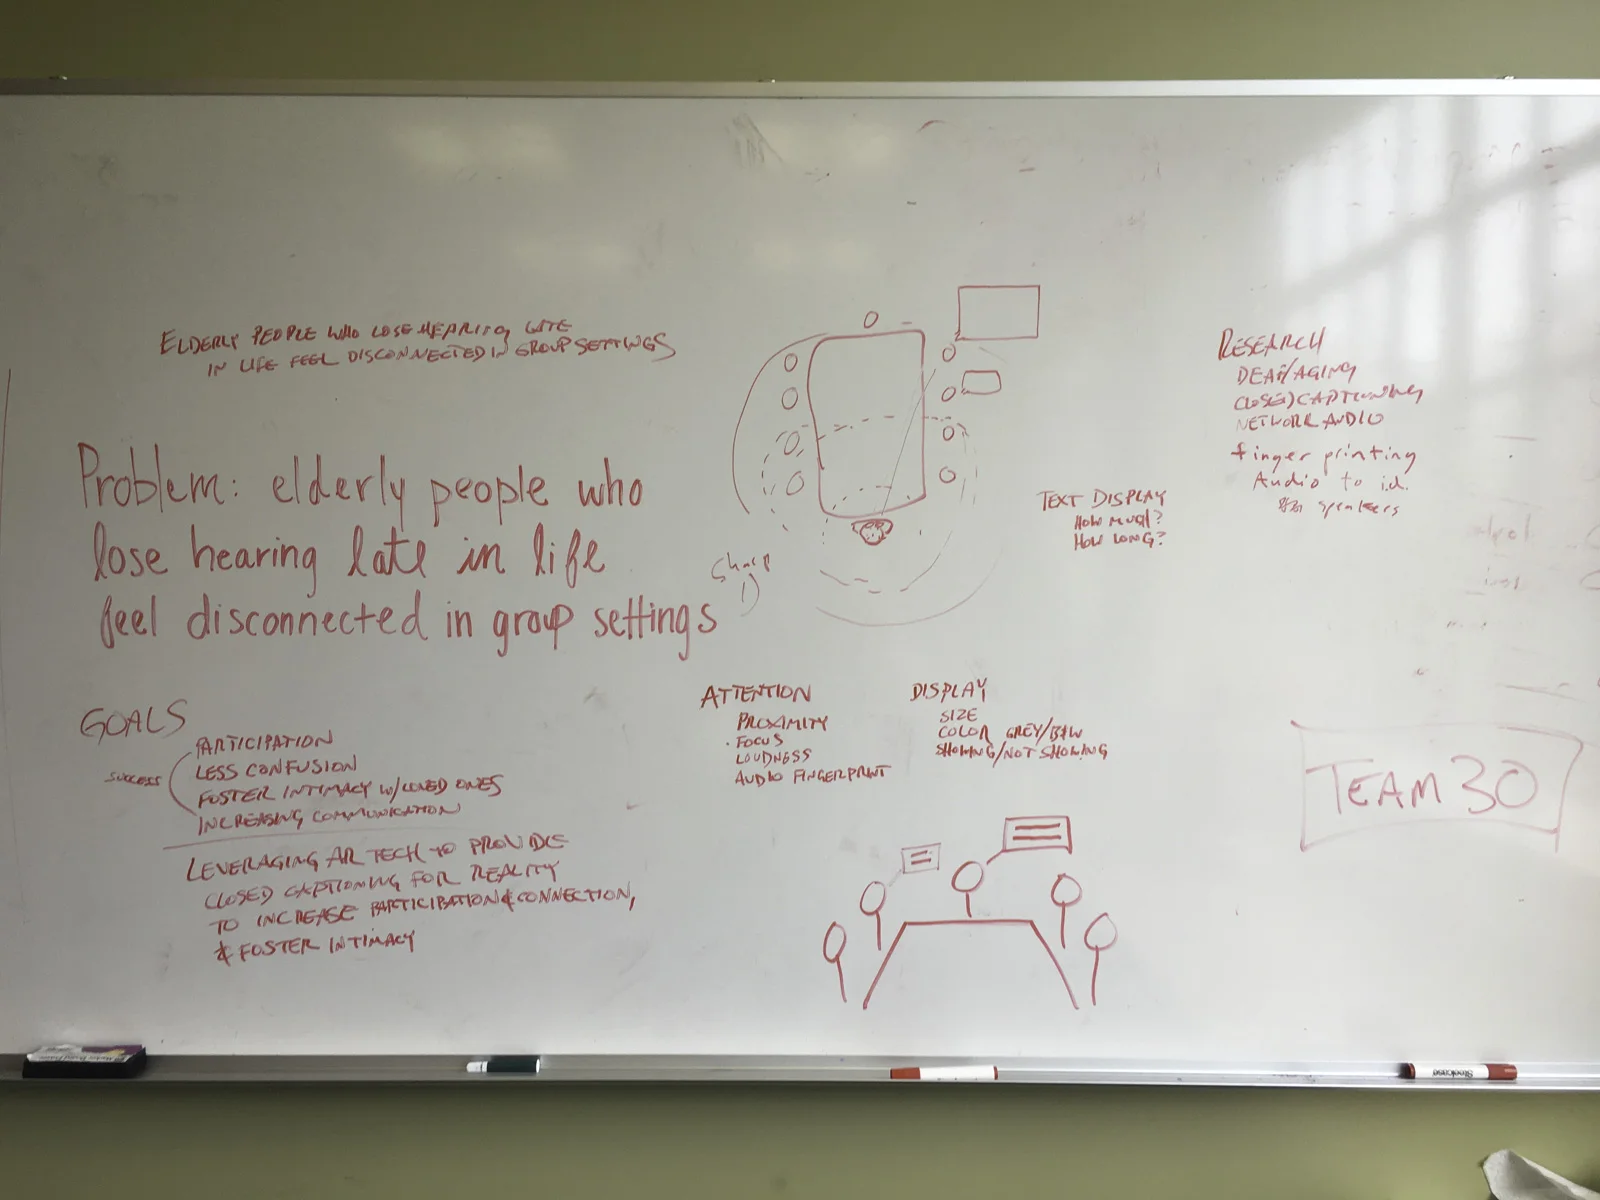 ELDERLY PEOPLE WHO LOSE HEARING LATE
IN LIFE FEEL DISCONNECTED IN GROUP SETTINGS
Problem: elderly people who
lose hearing late in life
feel disconnected in group settings
GOALS
SUCCESS
PARTICIPATION
LESS CONFUSION
FOSTER INTIMACY W/LOVED ONES
INCREASING COMMUNICATION
LEVERAGING AR TECH TO PROVIDE
CLOSED CAPTIONING FOR REALITY
TO INCREASE PARTICIPATION & CONNECTION,
& FOSTER INTIMACY
Sharp
TEXT DISPLAY
HOW MUCH?
HOW LONG?
ATTENTION
PROXIMITY
· FOCUS
LOUDNESS
AUDIO FINGERPRINT
DISPLAY
SIZE
COLOR GREY/B&W
SHOWING/NOT SHOWING
RESEARCH
DEAF/AGING
CLOSED CAPTIONING
NETWORK AUDIO
finger printing
Audio to i.d.
speakers
TEAM 30
Steelcase